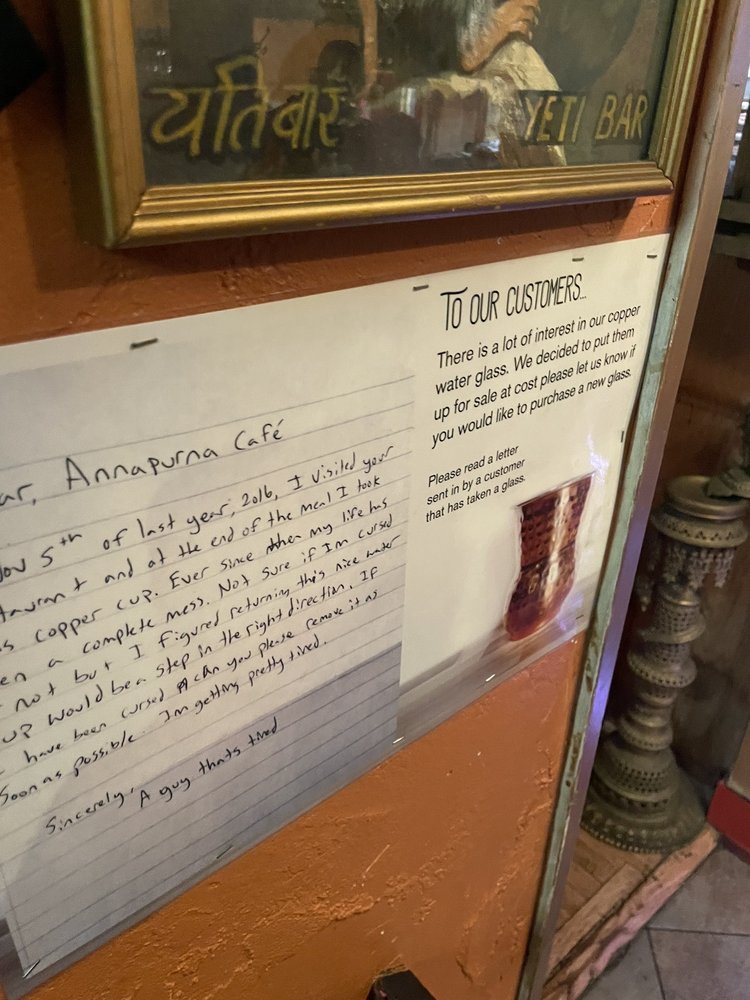 यति बार
YETI BAR
TO OUR CUSTOMERS...
There is a lot of interest in our copper
water glass. We decided to put them
up for sale at cost please let us know if
you would like to purchase a new glass.
Please read a letter
sent in by a customer
that has taken a glass.
ar, Annapurna Café
ov 5th of last year, 2016, I visited your
staurant and at the end of the meal I took
s copper cup. Ever since then my life has
en a complete mess. Not sure if Im cursed
not but I figured returning this nice water
up would be a step in the right direction. If
have been cursed can you please remove it as
Soon as possible. Im getting pretty tired.
Sincerely,
A guy thats tired